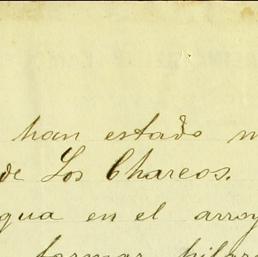 han estado
de Los Charcos.
agua en el arroy
formar